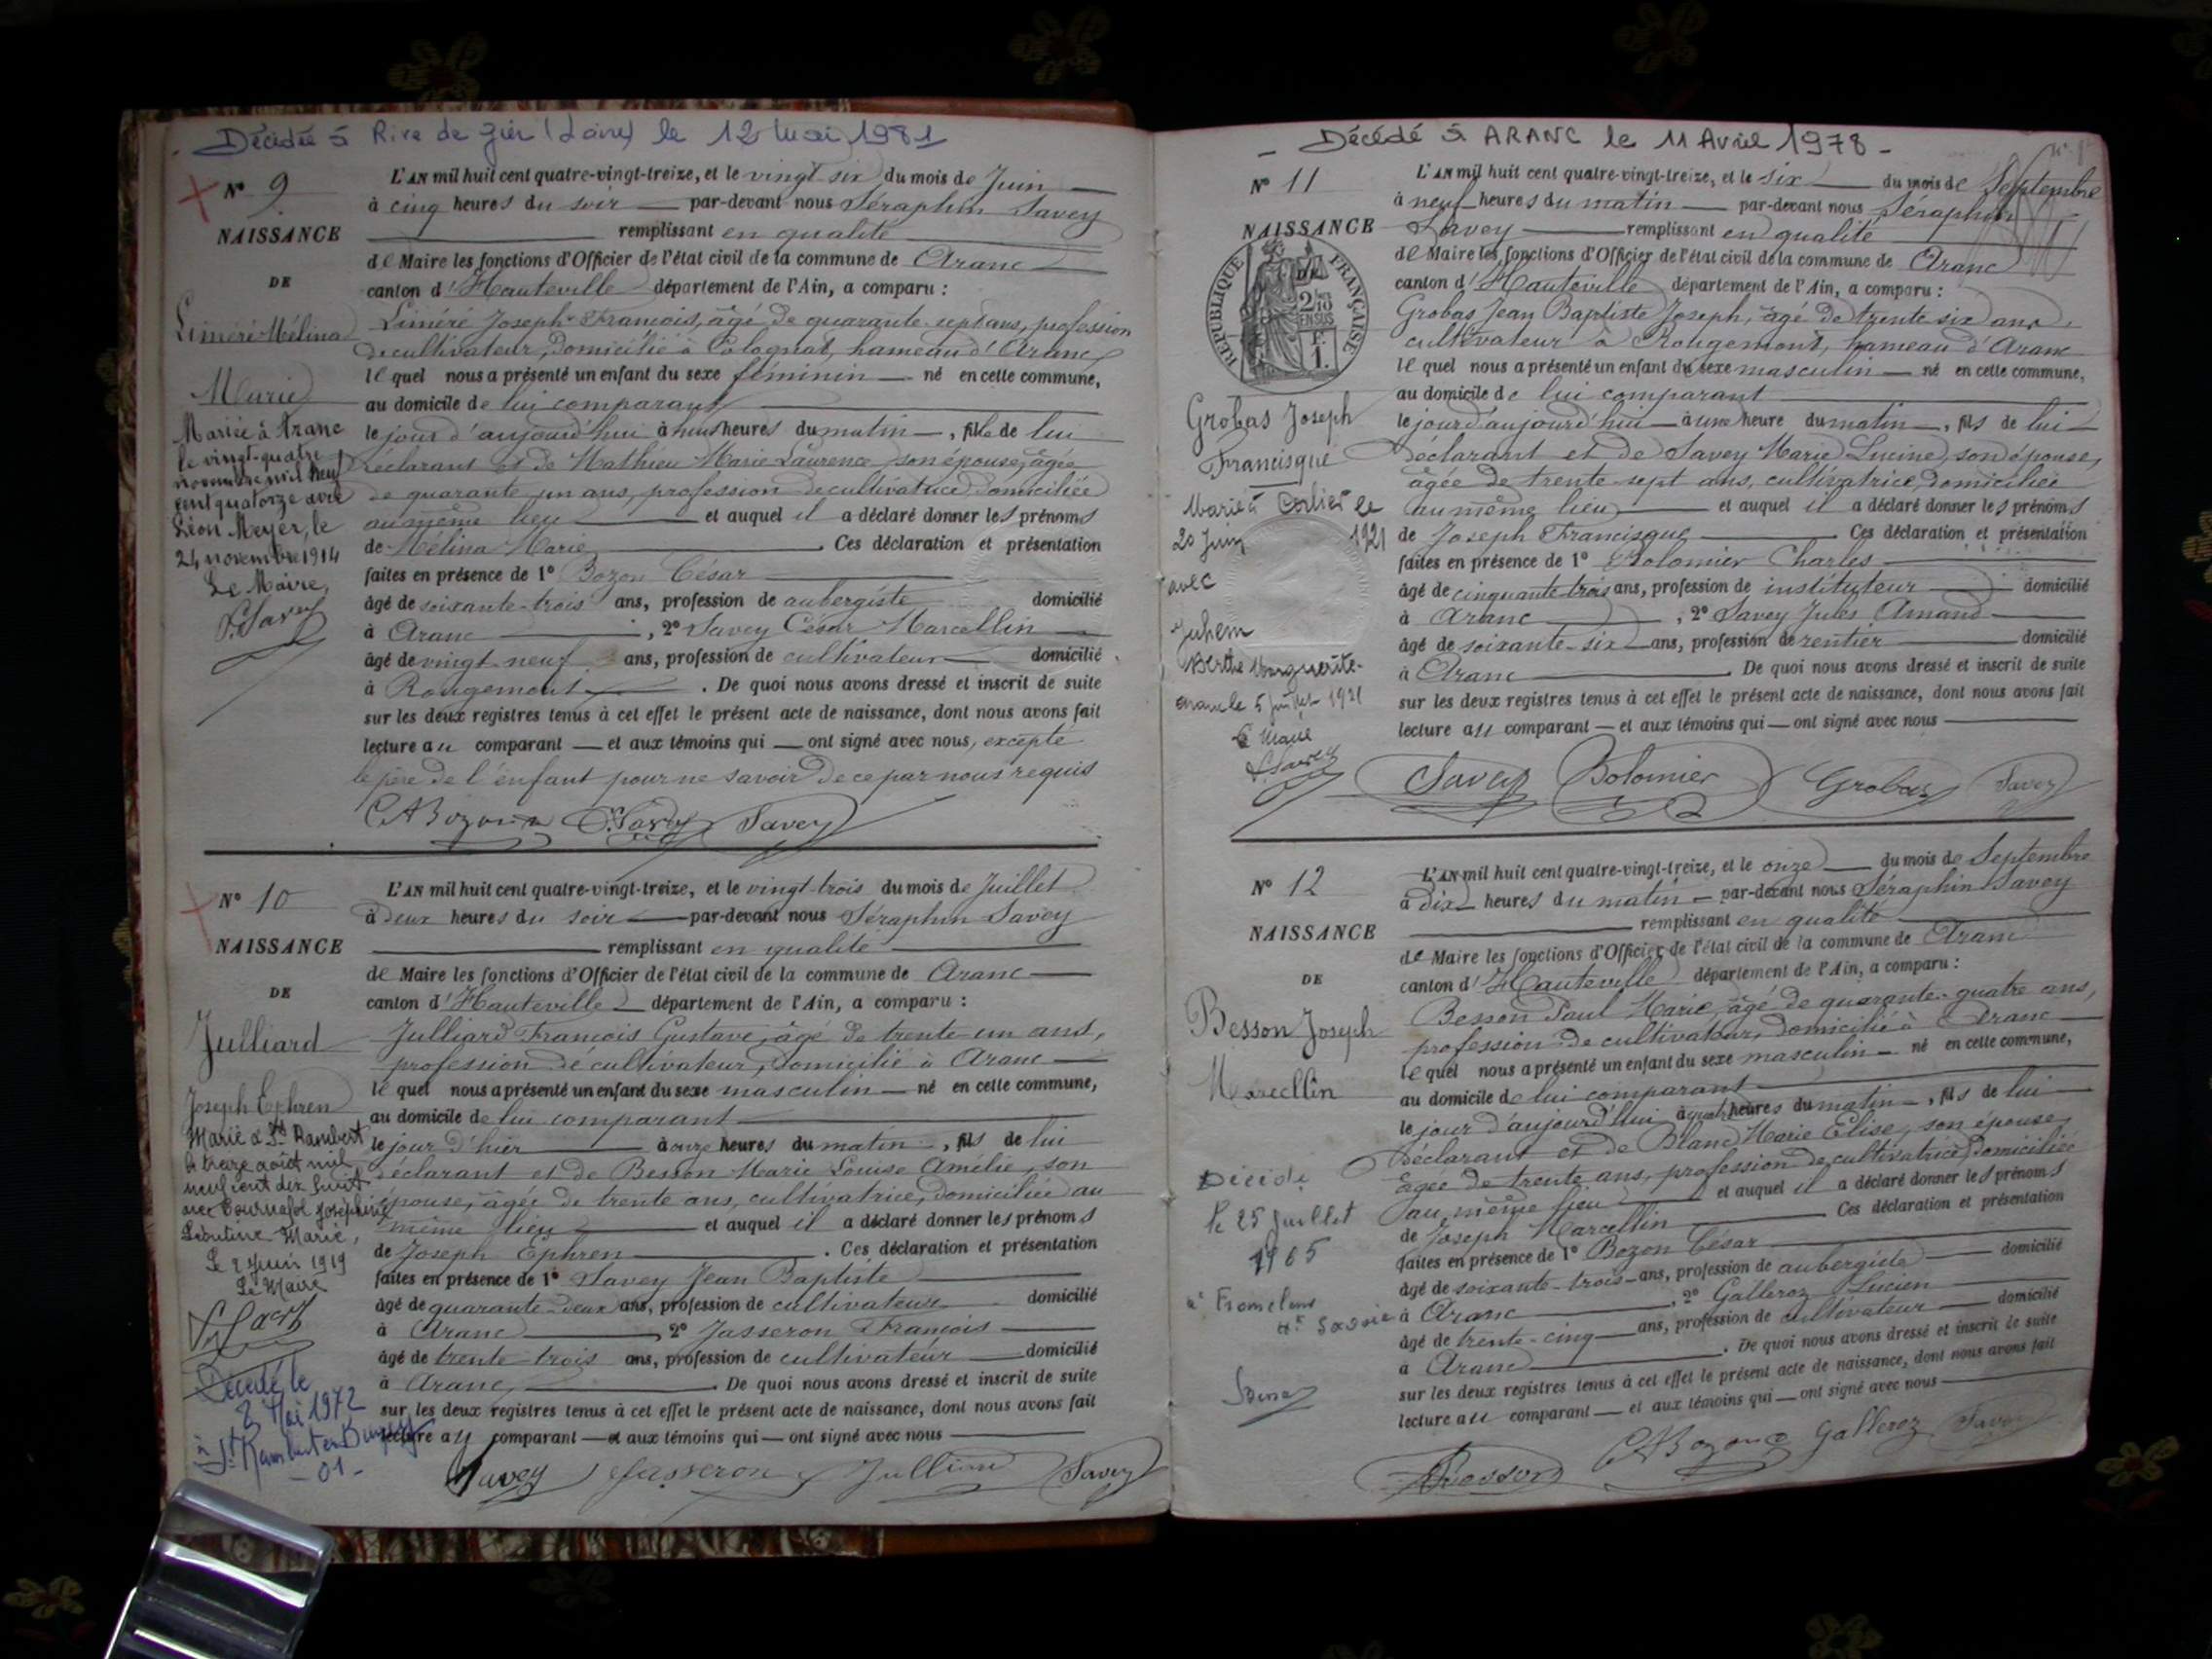 Décédée à Rive de Gier (Loire) le 12 Mai 1981
N° 9
NAISSANCE
DE
Liméré Mélina
Marie
Mariée à Aranc
le vingt-quatre
novembre mil neuf
cent quatorze avec
Léon Meyer, le
24 novembre 1914
Le Maire,
S. Savey
L'AN mil huit cent quatre-vingt-treize, et le vingt six du mois de Juin
à cinq heures du soir par-devant nous Séraphin Savey
remplissant en qualité
de Maire les fonctions d'Officier de l'état civil de la commune de Aranc
canton d'Hauteville département de l'Ain, a comparu :
Liméré Joseph François, âgé de quarante-sept ans, profession
de cultivateur, domicilié à Colognat, hameau d'Aranc
lequel nous a présenté un enfant du sexe féminin né en cette commune,
au domicile de lui comparant
le jour d'aujourd'hui à heures du matin, fille de lui
déclarant et de Mathieu Marie Laurence son épouse, âgée
de quarante un ans, profession de cultivatrice, domiciliée
au même lieu et auquel il a déclaré donner les prénoms
de Mélina Marie. Ces déclaration et présentation
faites en présence de 1° Bozon César
âgé de soixante-trois ans, profession de aubergiste domicilié
à Aranc, 2° Savey César Marcellin
âgé de vingt neuf ans, profession de cultivateur domicilié
à Rougemont. De quoi nous avons dressé et inscrit de suite
sur les deux registres tenus à cet effet le présent acte de naissance, dont nous avons fait
lecture au comparant et aux témoins qui ont signé avec nous, excepté
le père de l'enfant pour ne savoir de ce par nous requis
C A Bozon C. Savey Savey
N° 10
NAISSANCE
DE
Julliard
Joseph Ephren
Marié à St Rambert
le treize août mil
neuf cent dix huit
avec Tournafol Joséphine
Léontine Marie,
Le 2 Juin 1919
Le Maire
Décédé le
2 Mai 1972
à St Rambert en Bugey
- 01 -
L'AN mil huit cent quatre-vingt-treize, et le vingt-trois du mois de Juillet
à deux heures du soir par-devant nous Séraphin Savey
remplissant en qualité
de Maire les fonctions d'Officier de l'état civil de la commune de Aranc
canton d'Hauteville département de l'Ain, a comparu :
Julliard François Gustave, âgé de trente un ans,
profession de cultivateur, domicilié à Aranc
lequel nous a présenté un enfant du sexe masculin né en cette commune,
au domicile de lui comparant
le jour d'hier à onze heures du matin, fils de lui
déclarant et de Besson Marie Louise Amélie, son
épouse, âgée de trente ans, cultivatrice, domiciliée au
même lieu et auquel il a déclaré donner les prénoms
de Joseph Ephren. Ces déclaration et présentation
faites en présence de 1° Savey Jean Baptiste
âgé de quarante-deux ans, profession de cultivateur domicilié
à Aranc, 2° Jasseron François
âgé de trente trois ans, profession de cultivateur domicilié
à Aranc. De quoi nous avons dressé et inscrit de suite
sur les deux registres tenus à cet effet le présent acte de naissance, dont nous avons fait
lecture au comparant et aux témoins qui ont signé avec nous
Savey Jasseron Julliard Savey
- Décédé à ARANC le 11 Avril 1978 -
N° 11
NAISSANCE
DE
RÉPUBLIQUE FRANÇAISE
2/10 EN SUS
1.
Grobas Joseph
Francisque
Marié à Corlier le
20 Juin 1921
avec
Juhem
Berthe Marguerite
Aranc le 5 juillet 1921
Le Maire
S. Savey
L'AN mil huit cent quatre-vingt-treize, et le six du mois de Septembre
à neuf heures du matin par-devant nous Séraphin
Savey remplissant en qualité
de Maire les fonctions d'Officier de l'état civil de la commune de Aranc
canton d'Hauteville département de l'Ain, a comparu :
Grobas Jean Baptiste Joseph, âgé de trente six ans,
cultivateur à Rougemont, hameau d'Aranc
lequel nous a présenté un enfant du sexe masculin né en cette commune,
au domicile de lui comparant
le jour d'aujourd'hui à une heure du matin, fils de lui
déclarant et de Savey Marie Lucine, son épouse,
âgée de trente-sept ans, cultivatrice, domiciliée
au même lieu et auquel il a déclaré donner les prénoms
de Joseph Francisque Ces déclaration et présentation
faites en présence de 1° Bolomier Charles
âgé de cinquante-trois ans, profession de instituteur domicilié
à Aranc, 2° Savey Jules Amand
âgé de soixante-six ans, profession de rentier domicilié
à Aranc. De quoi nous avons dressé et inscrit de suite
sur les deux registres tenus à cet effet le présent acte de naissance, dont nous avons fait
lecture au comparant et aux témoins qui ont signé avec nous
Savey Bolomier Grobas Savey
N° 12
NAISSANCE
DE
Besson Joseph
Marcellin
Décédé
le 25 Juillet
1965
à
Hte Savoie
L'AN mil huit cent quatre-vingt-treize, et le onze du mois de Septembre
à dix heures du matin par-devant nous Séraphin Savey
remplissant en qualité
de Maire les fonctions d'Officier de l'état civil de la commune de Aranc
canton d'Hauteville département de l'Ain, a comparu :
Besson Paul Marie, âgé de quarante-quatre ans,
profession de cultivateur, domicilié à Aranc
lequel nous a présenté un enfant du sexe masculin né en cette commune,
au domicile de lui comparant
le jour d'aujourd'hui à quatre heures du matin, fils de lui
déclarant et de Blanc Marie Elise, son épouse,
âgée de trente ans, profession de cultivatrice, domiciliée
au même lieu et auquel il a déclaré donner les prénoms
de Joseph Marcellin Ces déclaration et présentation
faites en présence de 1° Bozon César
âgé de soixante-trois ans, profession de aubergiste domicilié
à Aranc, 2° Galleroz Lucien
âgé de trente-cinq ans, profession de cultivateur domicilié
à Aranc. De quoi nous avons dressé et inscrit de suite
sur les deux registres tenus à cet effet le présent acte de naissance, dont nous avons fait
lecture au comparant et aux témoins qui ont signé avec nous
Besson C A Bozon Galleroz Savey